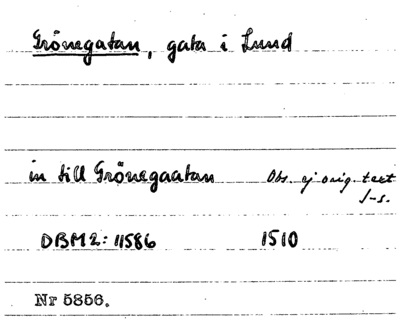 Grönegatan, gata i Lund
in till Grönegaatan Obs. ej orig. text
J-s.
DBM2: 11586 1510
Nr 5856.